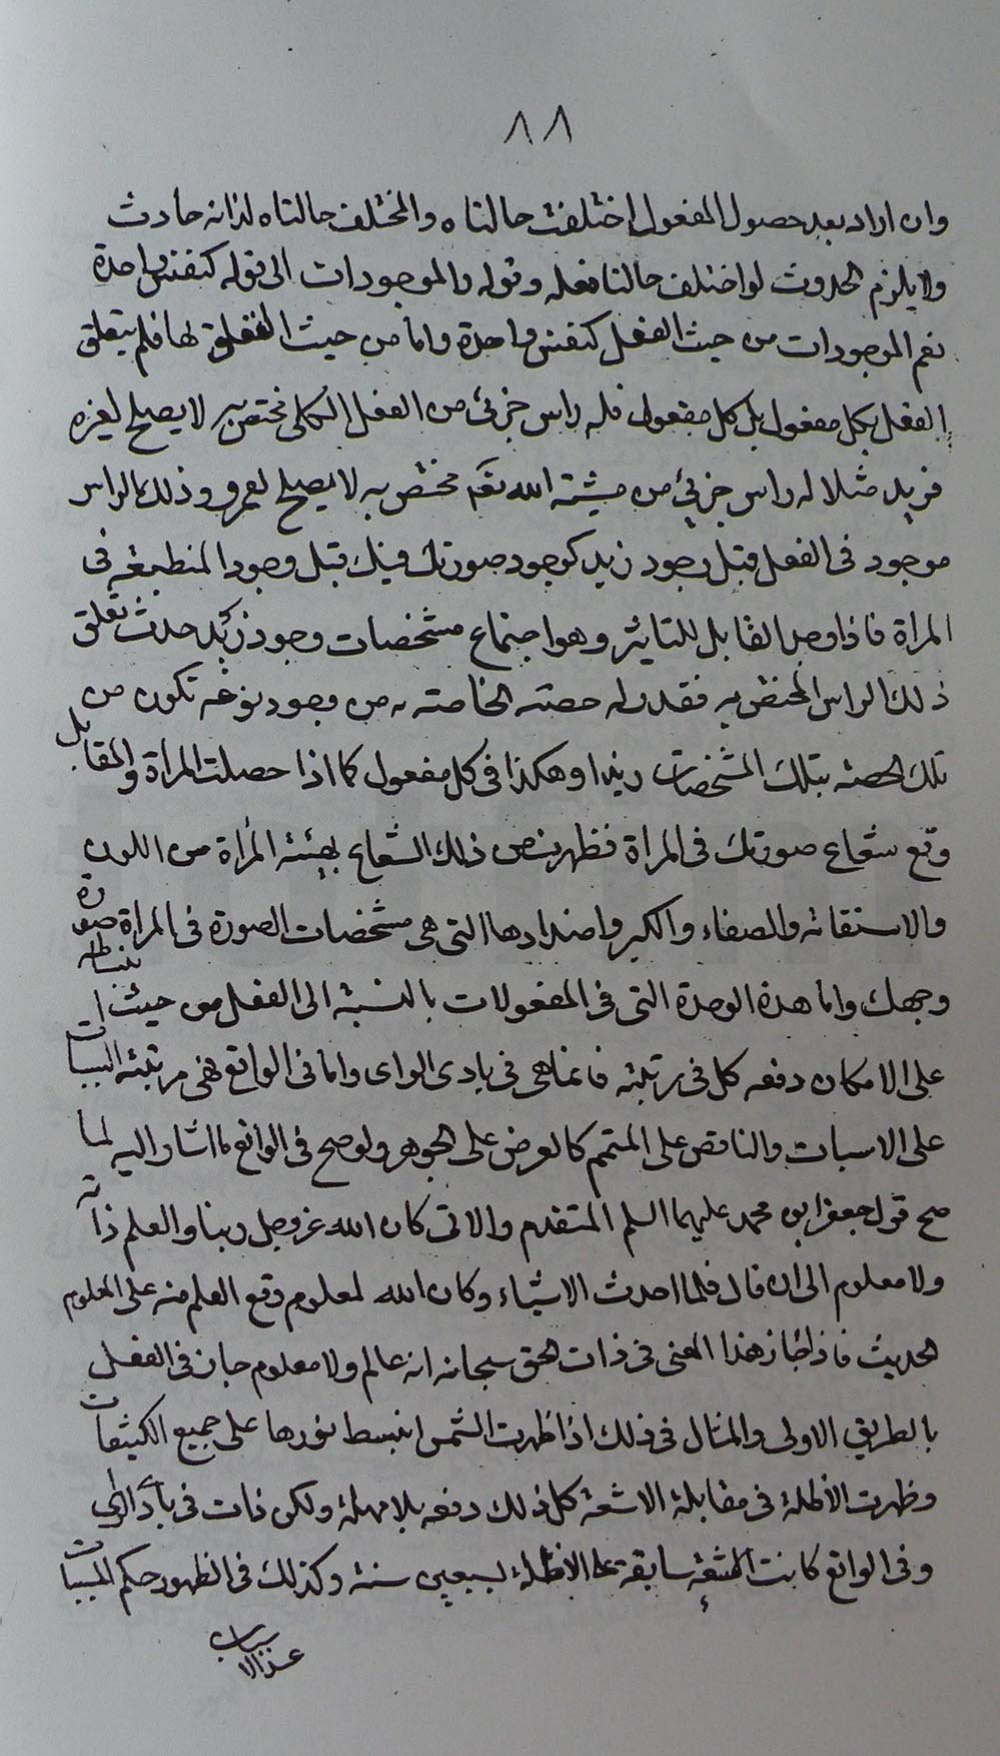 ٨٨
وان اراد بعد حصول المفعول اختلفت حالتاه والمختلف حالتاه لذاته حادث
ولا يلزم الحدوث لو اختلف حالتا فعله وقوله والموجودات الى قوله كنفس واحدة
نعم الموجودات من حيث الفعل كنفس واحدة واما من حيث التعلق لها فلم يتعلق
الفعل بكل مفعول بل كل مفعول فله راس جزئى من الفعل الكلى مختص به لا يصلح لغيره
فزيد مثلا له راس جزئي من مشيته الله تعم مختص به لا يصلح لعمرو وذلك الراس
موجود فى الفعل قبل وجود زيد كوجود صورتك فيك قبل وجود المنطبعة فى
المراة فاذا وجد القابل للتاثير وهو اجتماع مشخصات وجود زيد حدث تعلق
ذلك الراس المختص به فقدر له حصته الخاصته به من وجود نوعه تكون من
تلك الحصته بتلك المشخصات زيدا وهكذا فى كل مفعول كما اذا حصلت المراة والمقابل
وقع شعاع صورتك فى المراة فظهرت من ذلك الشعاع بهيئة المراة من اللون
والاستقامة والصفاء والكبر واضدادها التى هى مشخصات الصورة فى المراة صورة
وجهك واما هذه الوحدة التى فى المفعولات بالنسبة الى الفعل من حيث انبساطه
على الامكان دفعه كل فى رتبته فانما هى فى بادى الراى واما فى الواقع فهى مرتبته المسببات
على الاسباب والناقص على المتمم كالعرض على الجوهر ولو صح فى الواقع ما اشار اليه لما
صح قول جعفر ابن محمد عليهما السلم المتقدم والاتى كان الله عز وجل ربنا والعلم ذاته
ولا معلوم الى ان قال فلما احدث الاشياء وكان الله لمعلوم وقع العلم منه على المعلوم
الحديث فاذا جاز هذا المعنى فى ذات الحق سبحانه انه عالم ولا معلوم جاز فى الفعل
بالطريق الاولى والمثال فى ذلك اذا ظهرت الشمس انبسط نورها على جميع الكثيفات
وظهرت الاظلة فى مقابلة الاشعة كل ذلك دفعه بلا مهلة ولكن ذات فى بادى الراى
وفى الواقع كانت الاشعة سابقة على الاظلة بسبعين سنة وكذلك فى الظهور حكم المسببات
عند الاسباب